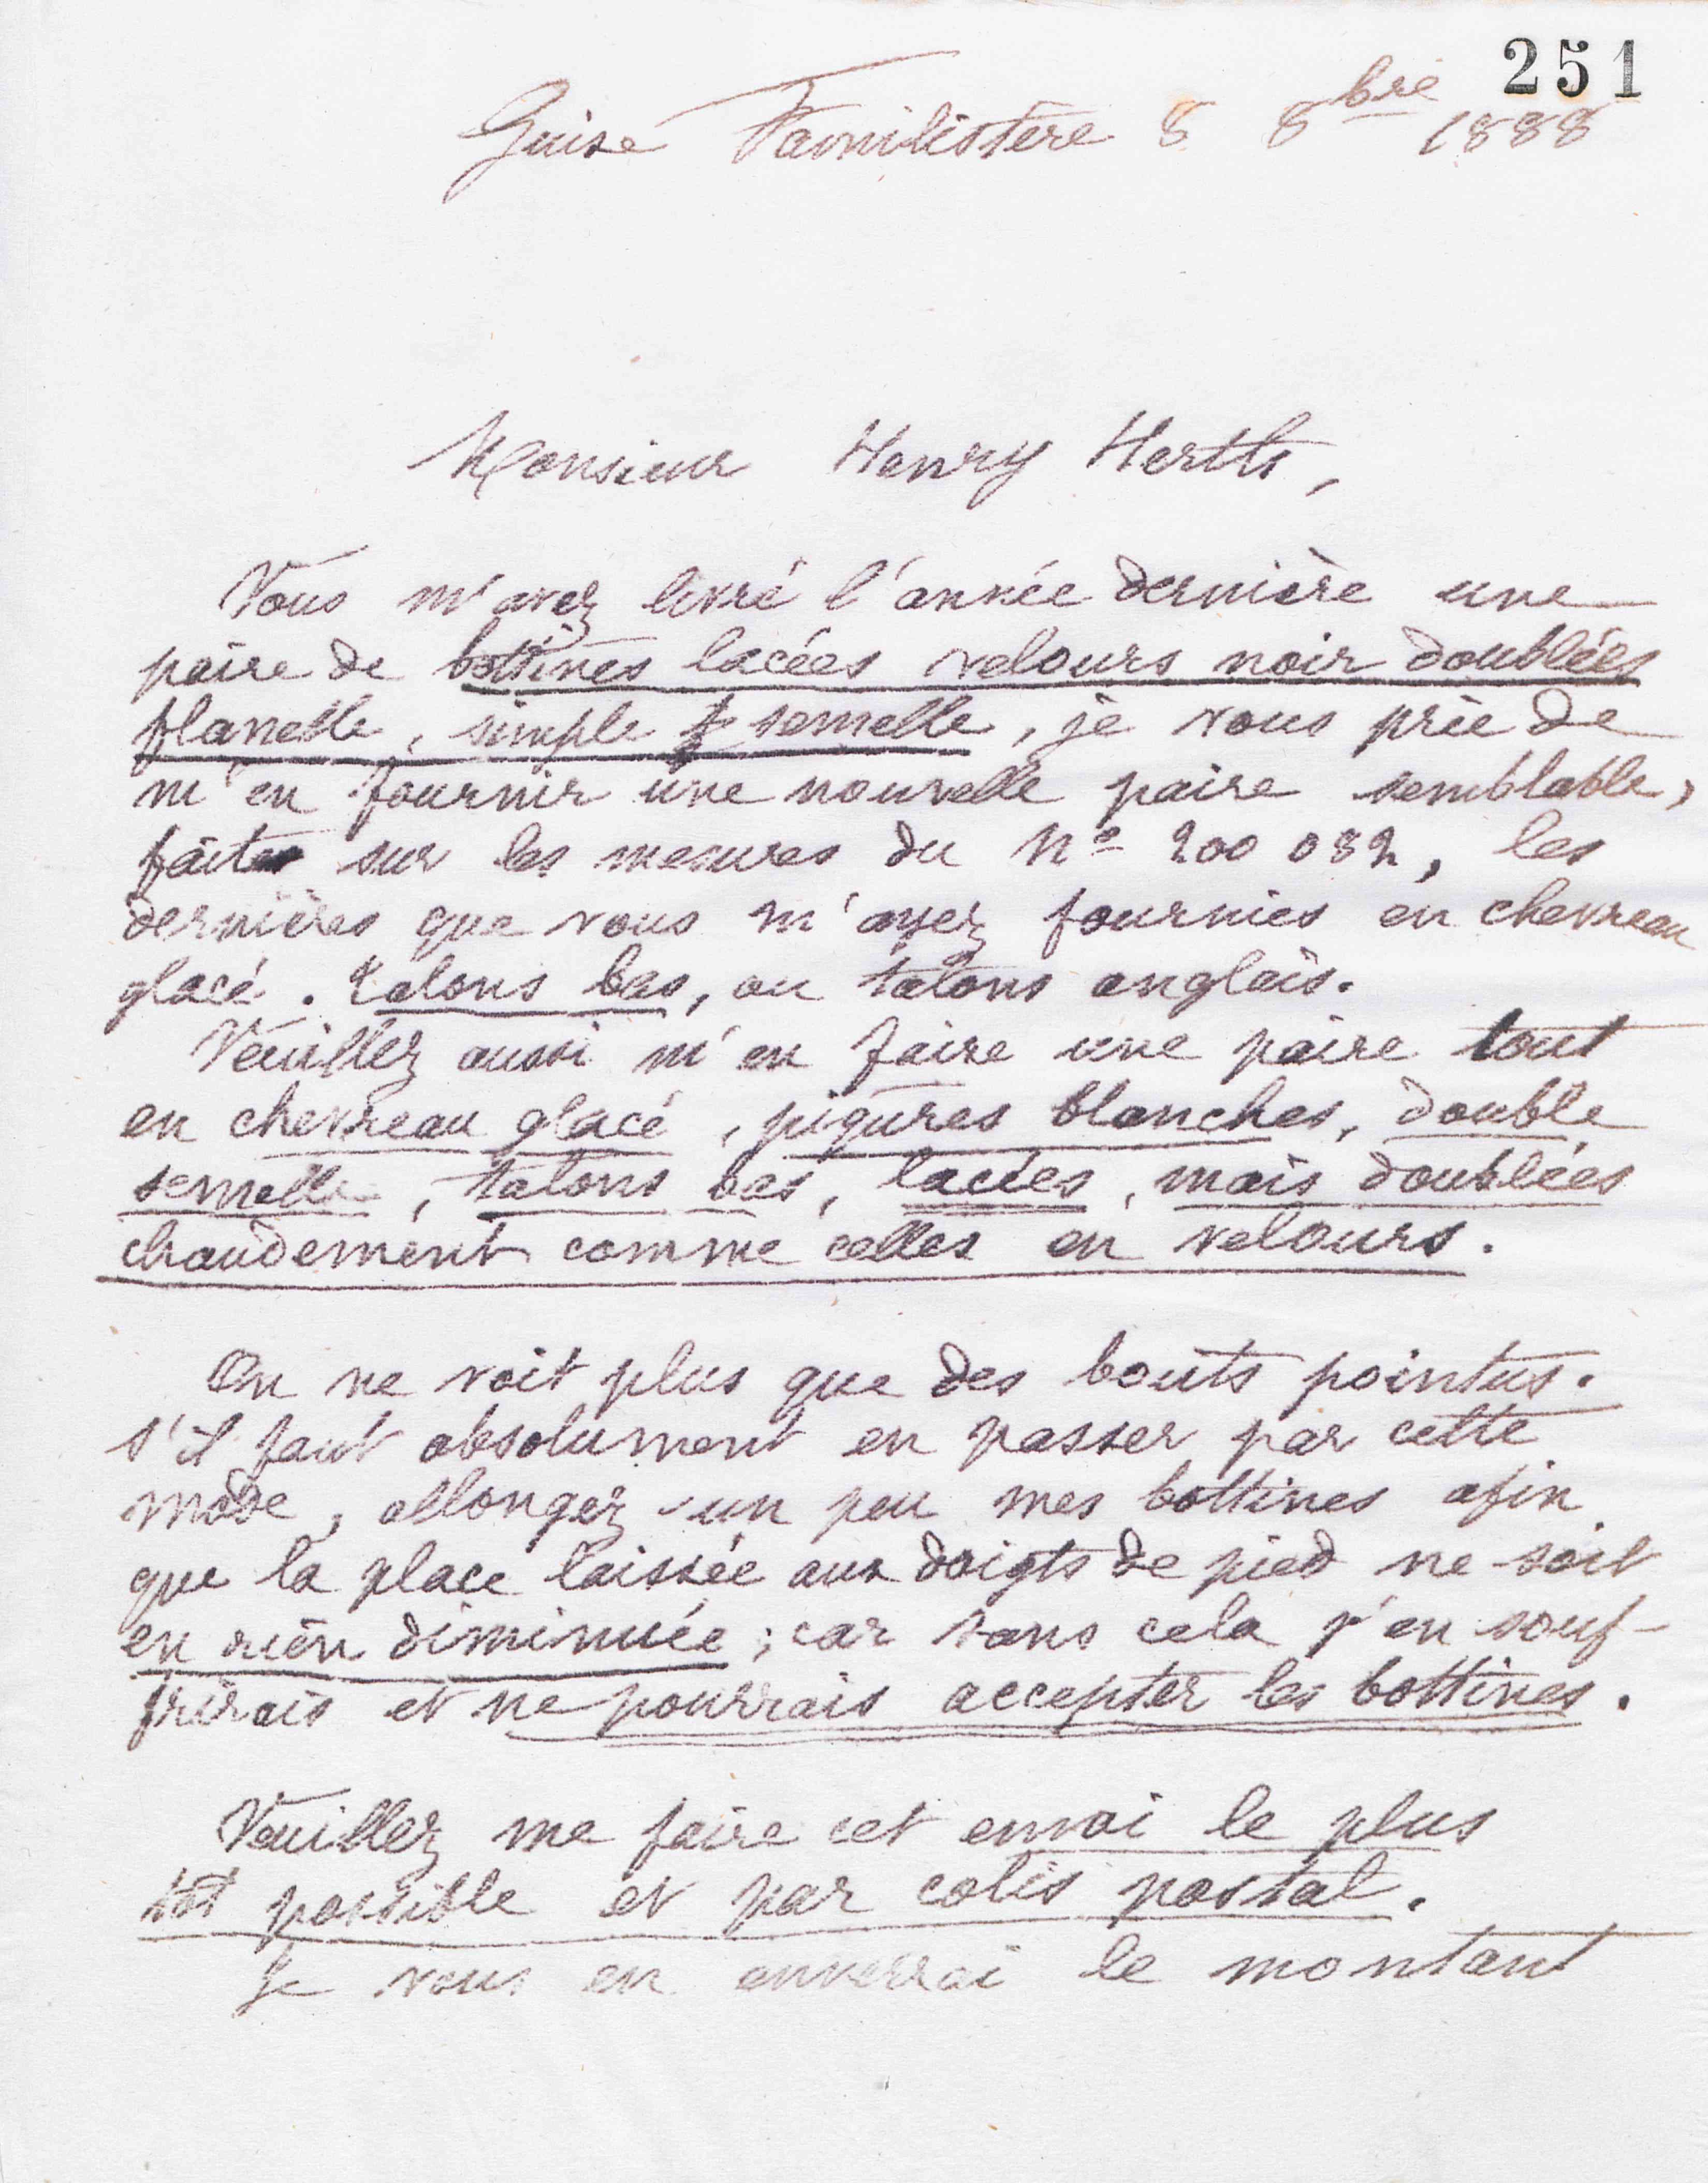 251
Guise Familistère 8 8bre 1888
Monsieur Henry Herths,
Vous m'avez livré l'année dernière une
paire de bottines lacées velours noir doublées
flanelle, simple semelle, je vous prie de
m'en fournir une nouvelle paire semblable,
faite sur les mesures du No 200 082, les
dernières que vous m'ayez fournies en chevreau
glacé. talons bas, ou talons anglais.
Veuillez aussi m'en faire une paire tout
en chevreau glacé, piqûres blanches, double
semelle, talons bas, lacées, mais doublées
chaudement comme celles en velours.
On ne voit plus que des bouts pointus.
S'il faut absolument en passer par cette
mode, allongez un peu mes bottines afin
que la place laissée aux doigts de pied ne soit
en rien diminuée ; car sans cela j'en souf-
frirais et ne pourrais accepter les bottines.
Veuillez me faire cet envoi le plus
tôt possible et par colis postal.
Je vous en enverrai le montant